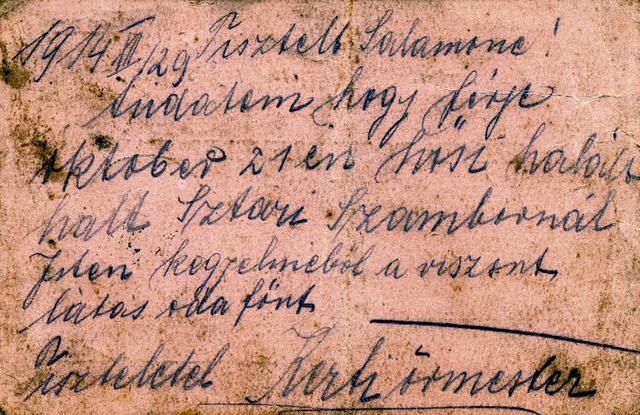 1914 III/29 Tisztelt Salamone!
tudatom hogy férje
október 21 én hősi halált
halt Sztari Szambornál
Isten kegyelméből a viszont
látás oda fönt
Tisztelettel Kerti őrmester